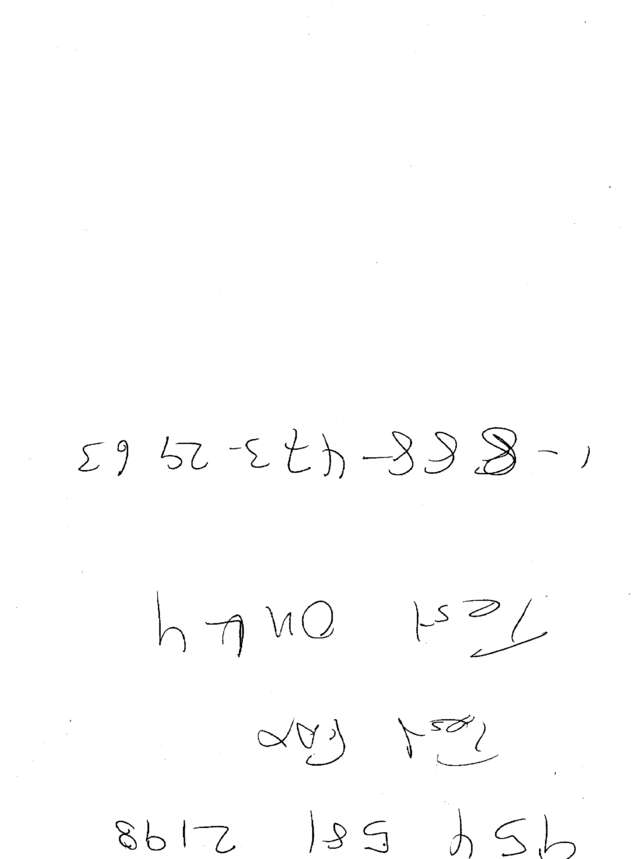 954 581 2198
Test FAX
Test ONLY
1-888-473-2963